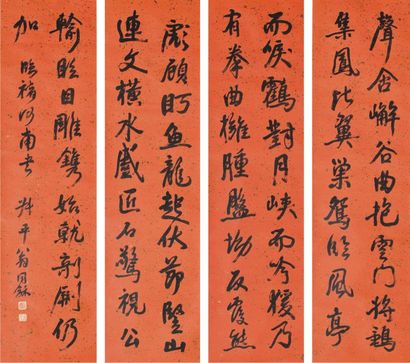 聲含嶰谷曲抱雲門將鶤
集鳳比翼巢鴛臨風亭
而唳鶴對月峽而吟猨乃
有拳曲擁腫盤坳反覆熊
彪顧盼魚龍起伏節豎山
連文橫水蹙匠石驚視公
輸眩目雕鐫始就剞劂仍
加 臨褚河南書 叔平翁同龢